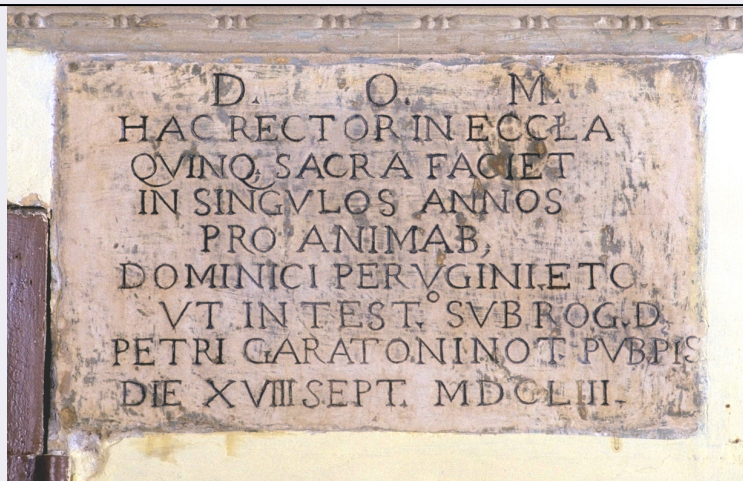 D. O. M.
HAC RECTOR IN ECCLA
QVINQ; SACRA FACIET
IN SINGVLOS ANNOS
PRO ANIMAB,
DOMINICI PERVGINI.ETC
VT IN TEST.° SVBROG. D.
PETRI GARATONI NOT. PVB PIS
DIE XVIII SEPT. MDCLIII.